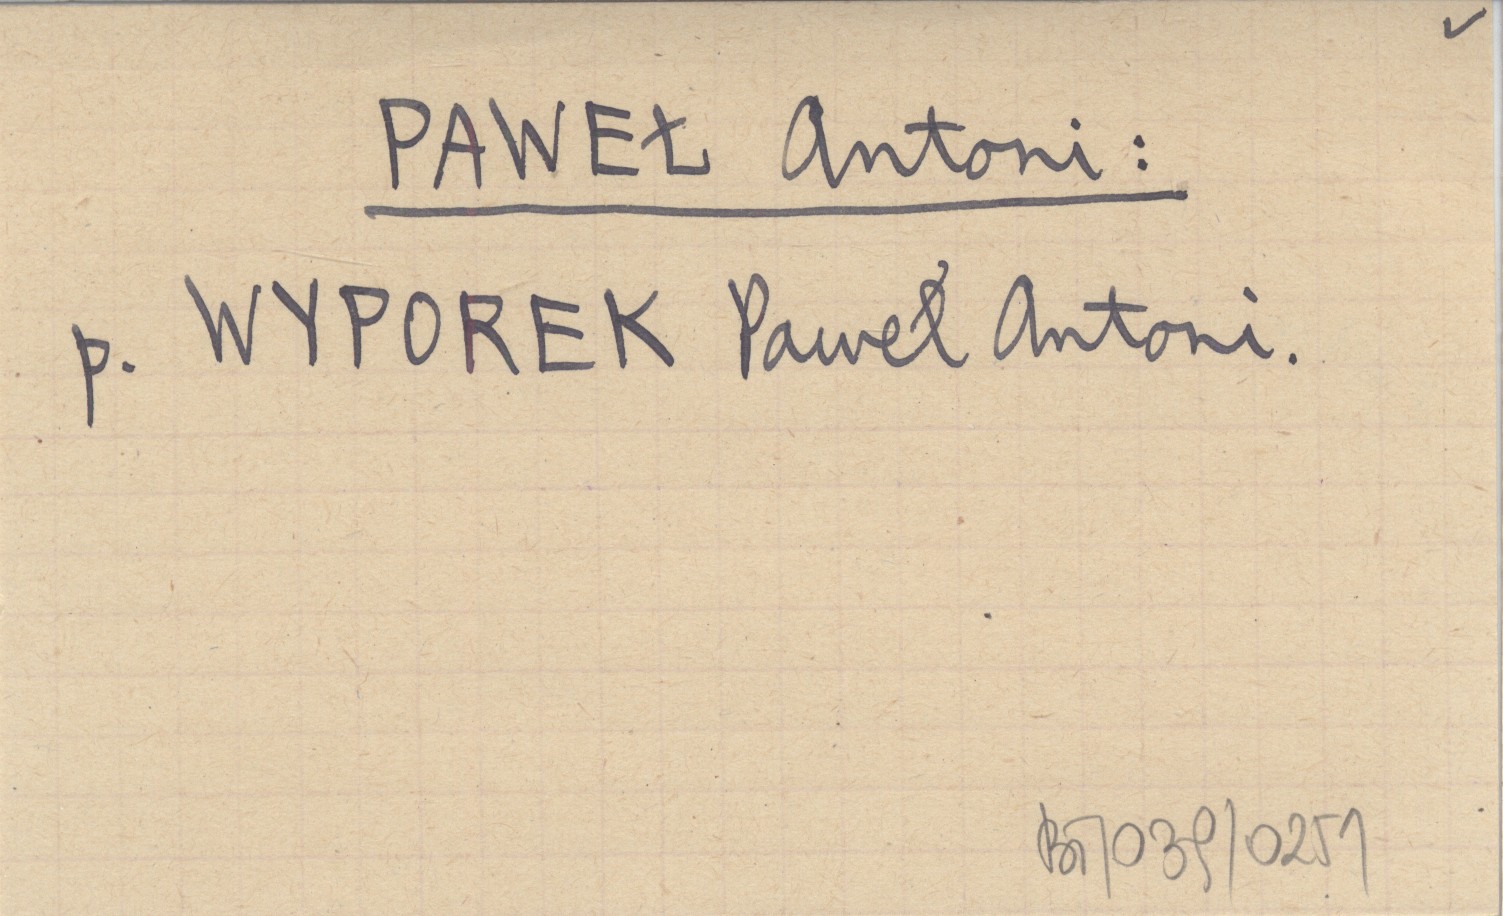 ✓
PAWEŁ Antoni:
p. WYPOREK Paweł Antoni.
/039/0251